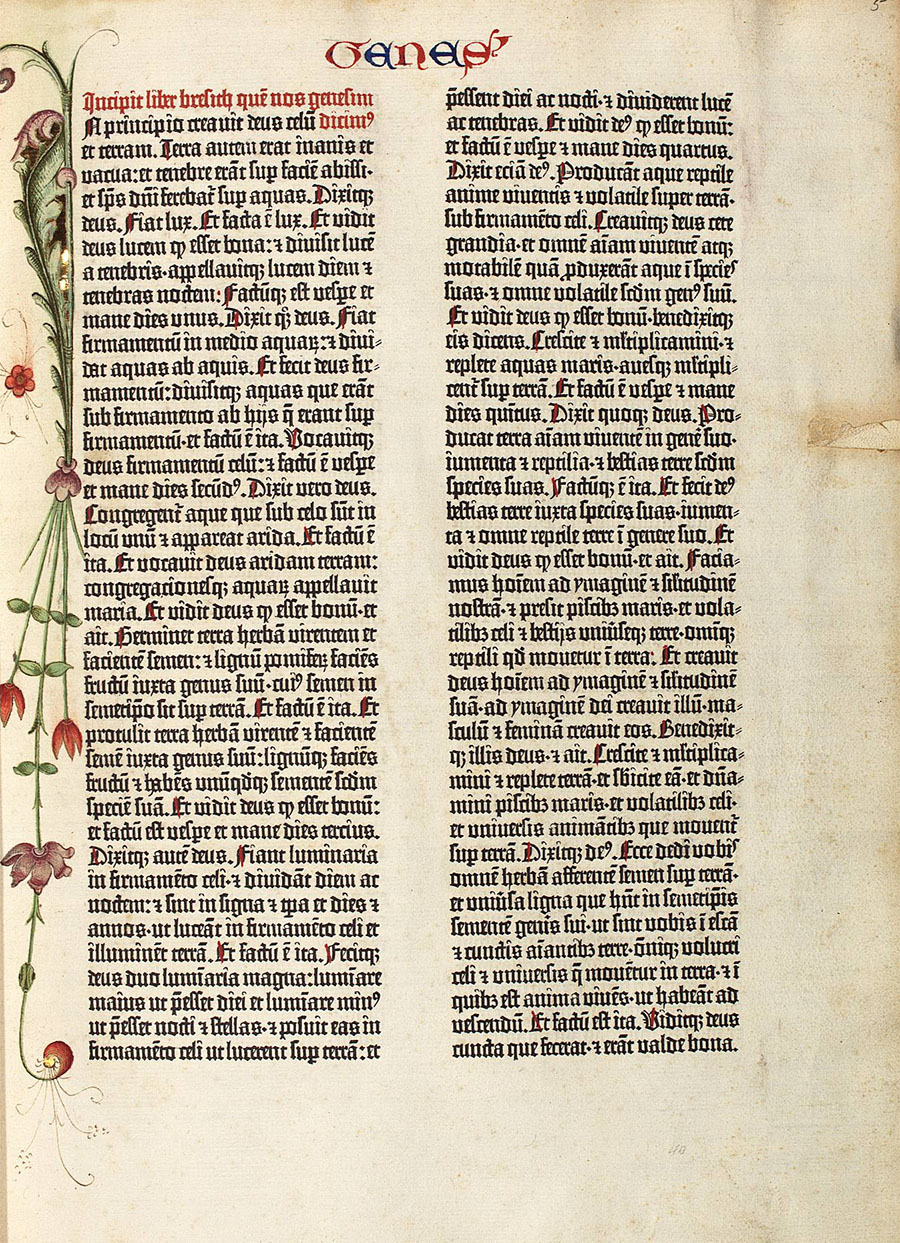 GENES
5
Incipit liber bresith quē nos genesim
N principio creavit deus celū dicimꝰ
et terram. Terra autem erat inanis et
vacua: et tenebre erāt sup faciē abissi·
et sp̄s dn̄i ferebat̄ sup aquas. Dixitqꝫ
deus. Fiat lux. Et facta ē lux. Et vidit
deus lucem ꝙ esset bona: ⁊ divisit lucē
a tenebris· appellavitqꝫ lucem diem ⁊
tenebras noctem: Factūqꝫ est vespe et
mane dies unus. Dixit qꝫ̄ deus. Fiat
firmamentū in medio aquaꝝ: ⁊ divi-
dat aquas ab aquis. Et fecit deus fir-
mamentū: divisitqꝫ aquas que erāt
sub firmamento ab hijs q̄ erant sup
firmamentū· et factū ē ita. Vocavitqꝫ
deus firmamentū celū: ⁊ factū ē vespe
et mane dies secūdꝰ. Dixit vero deus.
Congregent̄ aque que sub celo sūt in
locū unū ⁊ appareat arida. Et factū ē
ita. Et vocavit deus aridam terram:
congregacionesqꝫ aquaꝝ appellavit
maria. Et vidit deus ꝙ esset bonū· et
ait. Germinet terra herbā virentem et
facientē semen: ⁊ lignū pomiferꝝ faciēs
fructū iuxta genus suū· cuiꝰ semen in
semetipo sit sup terrā. Et factū ē ita. Et
protulit terra herbā virentē ⁊ facientē
semē iuxta genus suū: lignūqꝫ faciēs
fructū ⁊ habēs unūqdqꝫ sementē scdm
speciē suā. Et vidit deus ꝙ esset bonū:
et factū est vespe et mane dies tercius.
Dixitqꝫ autē deus. Fiant luminaria
in firmamēto celi· ⁊ dividāt diem ac
noctem: ⁊ sint in signa ⁊ tpa et dies ⁊
annos· ut luceāt in firmamēto celi et
illuminēt terrā. Et factū ē ita. Fecitqꝫ
deus duo luminaria magna: lumīare
maius ut p̄esset diei et lumīare minꝰ
ut p̄esset nocti ⁊ stellas· ⁊ posuit eas in
firmamēto celi ut lucerent sup terrā: et
p̄essent diei ac nocti· ⁊ dividerent lucē
ac tenebras. Et vidit deꝰ ꝙ esset bonū:
et factū ē vespe ⁊ mane dies quartus.
Dixit eciā deꝰ. Producāt aque reptile
anime viventis ⁊ volatile super terrā·
sub firmamēto celi. Creavitqꝫ deus cete
grandia· et omnē aīam viventē atqꝫ
motabilē quā ꝓduxerāt aque ī species
suas· ⁊ omne volatile scdm genꝰ suū.
Et vidit deus ꝙ esset bonū· benedixitqꝫ
eis dicens. Crescite ⁊ mltiplicamini· ⁊
replete aquas maris· avesqꝫ mltipli-
cent̄ sup terrā. Et factū ē vespe ⁊ mane
dies quītus. Dixit quoqꝫ deus. Pro-
ducat terra aīam viventē in genē suo·
iumenta ⁊ reptilia· ⁊ bestias terre scdm
species suas. Factūqꝫ ē ita. Et fecit deꝰ
bestias terre iuxta species suas· iumen-
ta ⁊ omne reptile terre ī genere suo. Et
vidit deus ꝙ esset bonū· et ait. Facia-
mus hoīem ad ymaginē ⁊ silitudinē
nostrā· ⁊ presit piscibꝫ maris· et vola-
tilibꝫ celi ⁊ bestijs univseqꝫ terre· omīqꝫ
reptili qd movetur ī terra. Et creavit
deus hoīem ad ymaginē ⁊ silitudinē
suā· ad ymaginē dei creavit illū· ma-
sculū ⁊ feminā creavit eos. Benedixit-
qꝫ illis deus· ⁊ ait. Crescite ⁊ mltiplica-
mini ⁊ replete terrā· et sbicite eā· et dn̄a-
mini piscibꝫ maris· et volatilibꝫ celi·
et universis animātibꝫ que movent̄
sup terrā. Dixitqꝫ deꝰ. Ecce dedi vobis
omnē herbā afferentē semen sup terrā·
et univsa ligna que hn̄t in semetipis
sementē genis sui· ut sint vobis ī escā
⁊ cunctis aīantibꝫ terre· oīniqꝫ volucri
celi ⁊ universis q̄ movētur in terra· ⁊ ī
quibꝫ est anima vivēs· ut habeāt ad
vescendū. Et factū est ita. Viditqꝫ deus
cuncta que fecerat· ⁊ erāt valde bona.